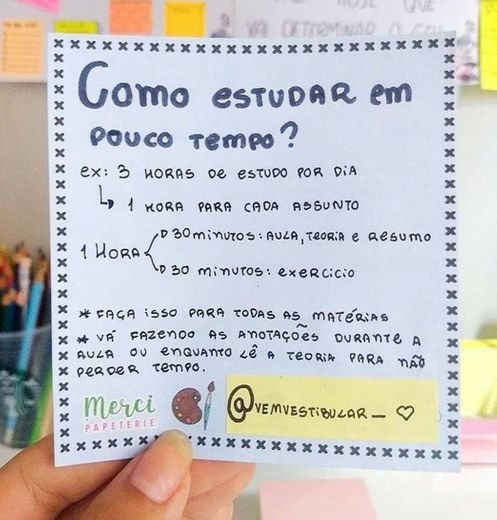 HOJE QUE
VAI DETERMINAR O SEU
COMO ESTUDAR EM
POUCO TEMPO?
EX: 3 HORAS DE ESTUDO POR DIA
1 HORA PARA CADA ASSUNTO
1 HORA
30 MINUTOS: AULA, TEORIA E RESUMO
30 MINUTOS: EXERCICIO
* FAÇA ISSO PARA TODAS AS MATÉRIAS
* VÁ FAZENDO AS ANOTAÇÕES DURANTE A
AULA OU ENQUANTO LÊ A TEORIA PARA NÃO
PERDER TEMPO.
Merci
PAPETERIE
@VEMVESTIBULAR_